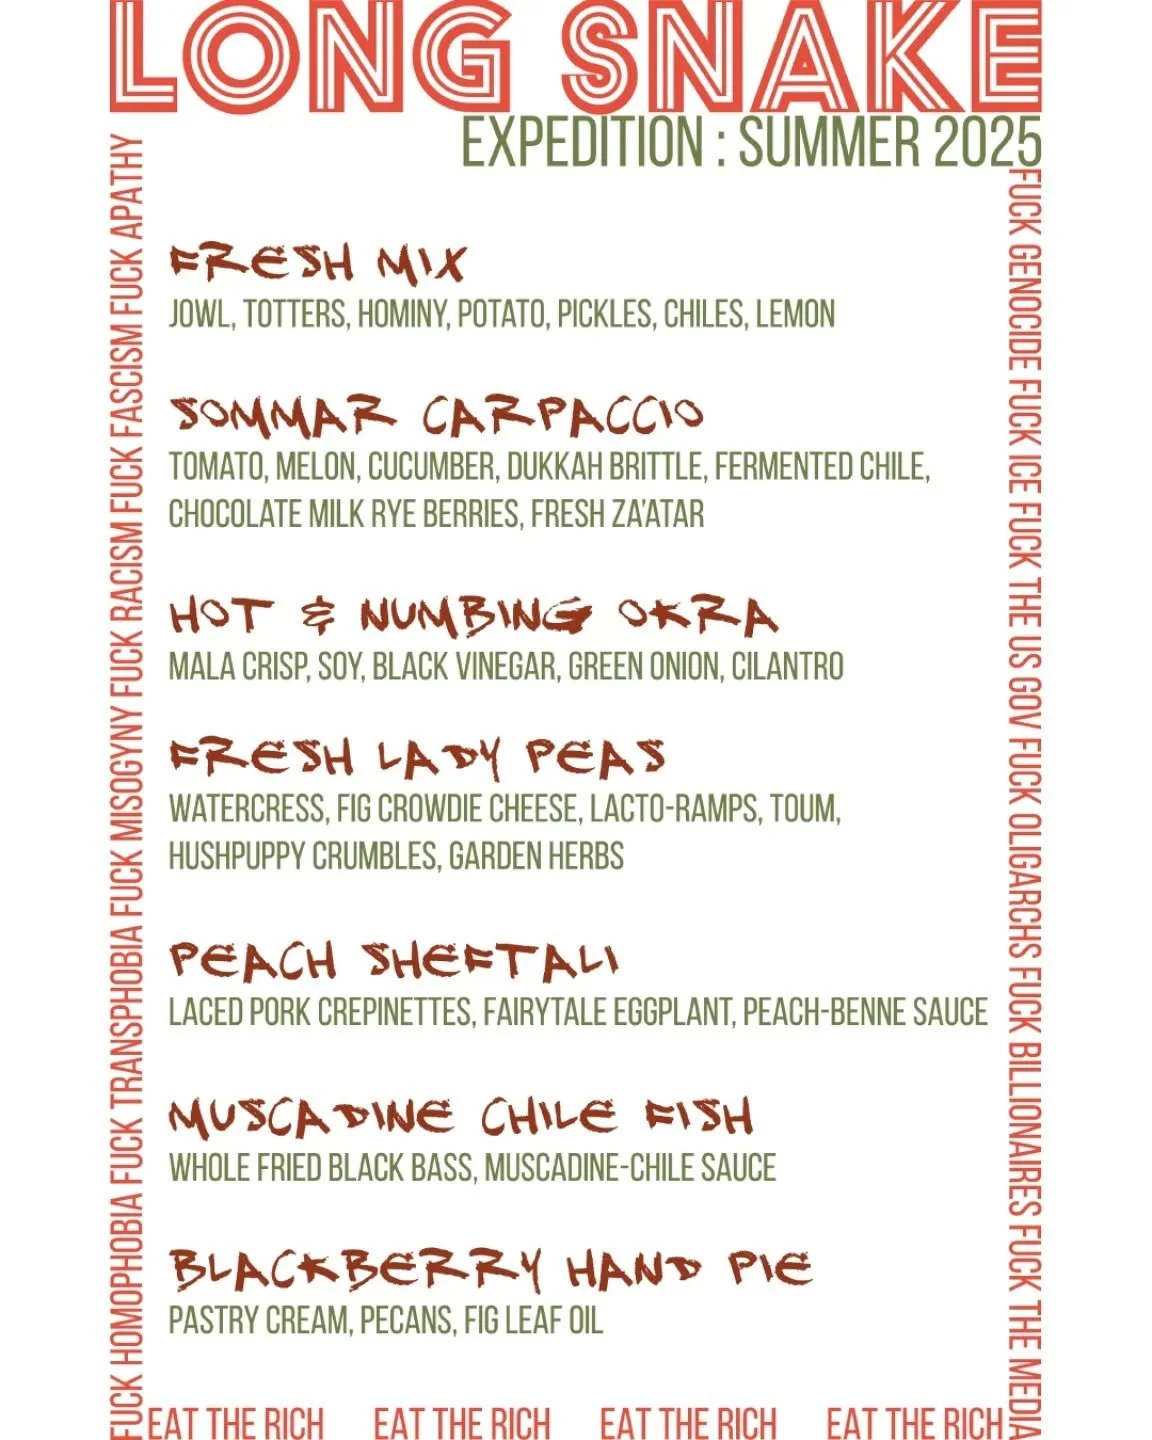 LONG SNAKE
EXPEDITION : SUMMER 2025
FRESH MIX
JOWL, TOTTERS, HOMINY, POTATO, PICKLES, CHILES, LEMON
SOMMAR CARPACCIO
TOMATO, MELON, CUCUMBER, DUKKAH BRITTLE, FERMENTED CHILE,
CHOCOLATE MILK RYE BERRIES, FRESH ZA'ATAR
HOT & NUMBING OKRA
MALA CRISP, SOY, BLACK VINEGAR, GREEN ONION, CILANTRO
FRESH LADY PEAS
WATERCRESS, FIG CROWDIE CHEESE, LACTO-RAMPS, TOUM,
HUSHPUPPY CRUMBLES, GARDEN HERBS
PEACH SHEFTALI
LACED PORK CREPINETTES, FAIRYTALE EGGPLANT, PEACH-BENNE SAUCE
MUSCADINE CHILE FISH
WHOLE FRIED BLACK BASS, MUSCADINE-CHILE SAUCE
BLACKBERRY HAND PIE
PASTRY CREAM, PECANS, FIG LEAF OIL
FUCK HOMOPHOBIA FUCK TRANSPHOBIA FUCK MISOGYNY FUCK RACISM FUCK FASCISM FUCK APATHY
FUCK GENOCIDE FUCK ICE FUCK THE US GOV FUCK OLIGARCHS FUCK BILLIONAIRES FUCK THE MEDIA
EAT THE RICH EAT THE RICH EAT THE RICH EAT THE RICH